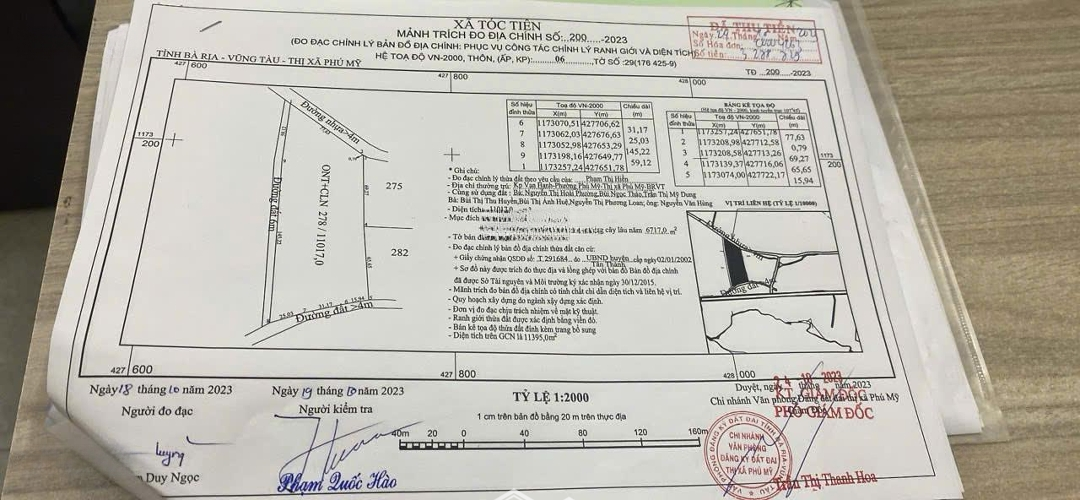 XÃ TÓC TIÊN
MẢNH TRÍCH ĐO ĐỊA CHÍNH SỐ: 200 -2023
(ĐO ĐẠC CHỈNH LÝ BẢN ĐỒ ĐỊA CHÍNH: PHỤC VỤ CÔNG TÁC CHỈNH LÝ RANH GIỚI VÀ DIỆN TÍCH)
HỆ TOẠ ĐỘ VN-2000, THÔN, (ẤP, KP): 06 TỜ SỐ :29(176 425-9)
ĐÃ THU TIỀN
Ngày 29 Tháng
Số Hóa đơn:
Số tiền:
TỈNH BÀ RỊA - VŨNG TÀU - THỊ XÃ PHÚ MỸ
TĐ 200 -2023
427 600
427 800
428 000
1173 200
1173 200
Đường nhựa>4m
Đường đất 6m
ONT+CLN 278 / 11017,0
275
282
31,17
15,94
25,03
Đường đất >4m
Số hiệu đỉnh thửa
Toạ độ VN-2000
X(m) Y(m)
Chiều dài (m)
6 1173070,51 427706,62
31,17
7 1173062,03 427676,63
25,03
8 1173052,98 427653,29
145,22
9 1173198,16 427649,77
59,12
1 1173257,24 427651,78
BẢNG KÊ TỌA ĐỘ
Số hiệu đỉnh thửa
Toạ độ VN-2000
X(m) Y(m)
Chiều dài (m)
1 1173257,24 427651,78
77,63
2 1173208,98 427712,58
0,79
3 1173208,58 427713,26
69,27
4 1173139,37 427716,06
65,65
5 1173074,00 427722,17
15,94
* Ghi chú:
- Đo đạc chỉnh lý thửa đất theo yêu cầu của: Phạm Thị Hiền
- Địa chỉ thường trú: Kp Vạn Hạnh-Phường Phú Mỹ-Thị xã Phú Mỹ-BRVT
- Cùng sử dụng đất : Bà: Nguyễn Thị Hoài Phương,Bùi Ngọc Thảo,Trần Thị Mỹ Dung
Bà: Bùi Thị Thu Huyền,Bùi Thị Ánh Huê,Nguyễn Thị Phương Loan; ông: Nguyễn Văn Hùng
- Diện tích: 11017,0
- Mục đích
cây lâu năm 6717,0 m²
- Tờ bản
- Đo đạc chỉnh lý bản đồ địa chính thửa đất căn cứ:
+ Giấy chứng nhận QSDĐ số T 291684 do UBND huyện Tân Thành cấp ngày 02/01/2002
+ Sơ đồ này được trích đo thực địa và lồng ghép với bản đồ Bản đồ địa chính
đã được Sở Tài nguyên và Môi trường ký xác nhận ngày 30/12/2015.
- Mảnh trích đo bản đồ địa chính có tính chất chỉ dẫn diện tích và liên hệ vị trí.
- Quy hoạch xây dựng do ngành xây dựng xác định.
- Đơn vị đo đạc chịu trách nhiệm về mặt kỹ thuật.
- Ranh giới thửa đất được xác định bằng viền đỏ.
- Bản kê tọa độ thửa đất đính kèm trang bổ sung
- Diện tích trên GCN là 11395,0m²
VỊ TRÍ LIÊN HỆ (TỶ LỆ 1/10000)
Đường nhựa
Đường đất >4m
427 600
427 800
428 000
Ngày 18 tháng 10 năm 2023
Người đo đạc
Duy Ngọc
Ngày 19 tháng 10 năm 2023
Người kiểm tra
Phạm Quốc Hào
TỶ LỆ 1:2000
1 cm trên bản đồ bằng 20 m trên thực địa
40m 20 0 40 80 120 160m
24 10 2023
Duyệt, ngày tháng năm 2023
Chi nhánh Văn phòng Đăng đất đai thị xã Phú Mỹ
KT. GIÁM ĐỐC
PHÓ GIÁM ĐỐC
VĂN PHÒNG ĐĂNG KÝ ĐẤT ĐAI TỈNH BÀ RỊA-VŨNG TÀU
CHI NHÁNH
VĂN PHÒNG
ĐĂNG KÝ ĐẤT ĐAI
THỊ XÃ PHÚ MỸ
Trần Thị Thanh Hoa